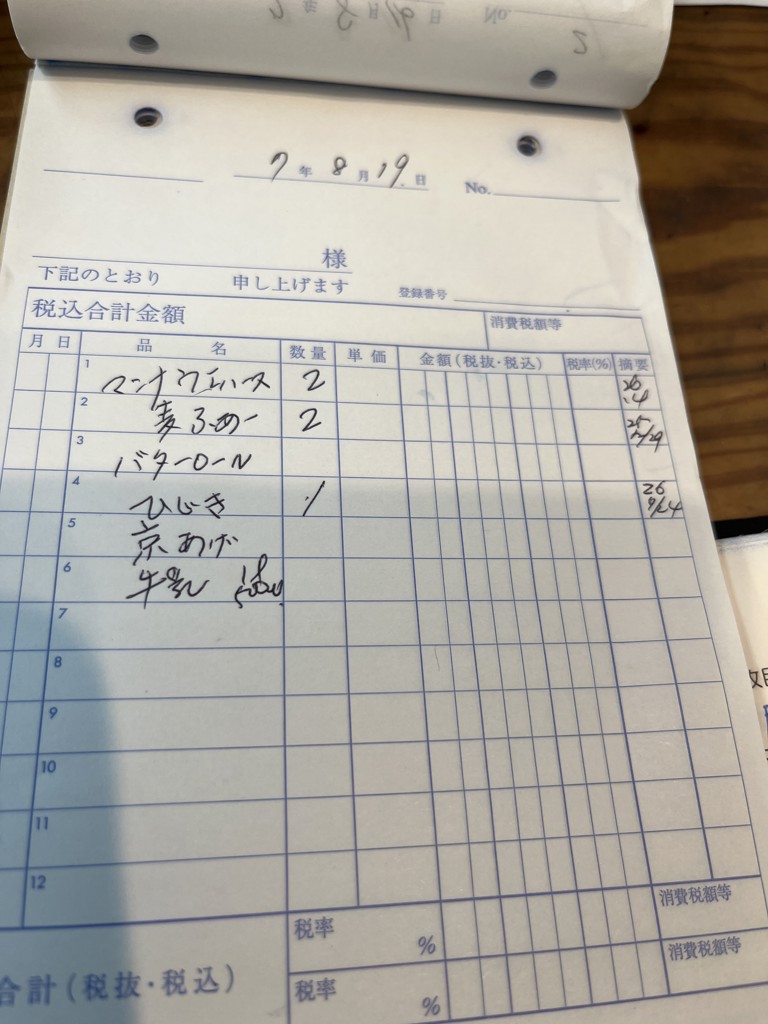 7年8月19日 No.
様
下記のとおり 申し上げます 登録番号
税込合計金額 消費税額等
月 日 品 名 数量 単価 金額(税抜・税込) 税率(%) 摘要
1 マンナウエハース 2 26 .4
2 麦ふぁー 2 25 12/29
3 バターロール
4 ひじき 1 26 9/24
5 京あげ
6 牛乳
7
8
9
10
11
12
税率 % 消費税額等
合計(税抜・税込) 税率 % 消費税額等